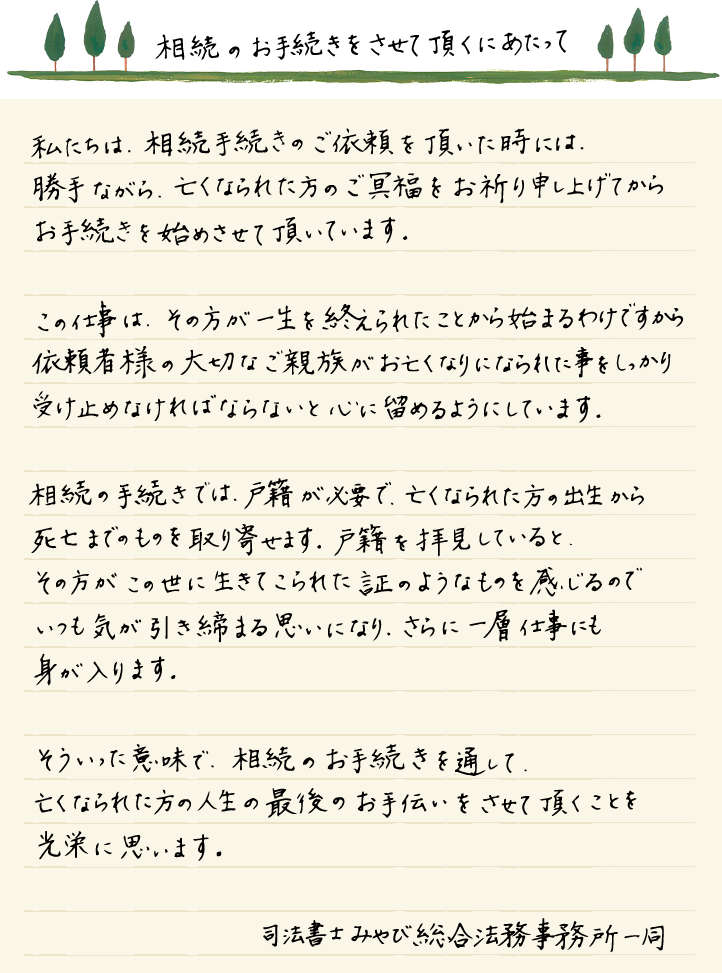 相続のお手続きをさせて頂くにあたって
私たちは、相続手続きのご依頼を頂いた時には、
勝手ながら、亡くなられた方のご冥福をお祈り申し上げてから
お手続きを始めさせて頂いています。
この仕事は、その方が一生を終えられたことから始まるわけですから
依頼者様の大切なご親族がお亡くなりになられた事をしっかり
受け止めなければならないと心に留めるようにしています。
相続の手続きでは、戸籍が必要で、亡くなられた方の出生から
死亡までのものを取り寄せます。戸籍を拝見していると、
その方がこの世に生きてこられた証のようなものを感じるので
いつも気が引き締まる思いになり、さらに一層仕事にも
身が入ります。
そういった意味で、相続のお手続きを通して、
亡くなられた方の人生の最後のお手伝いをさせて頂くことを
光栄に思います。
司法書士みやび総合法務事務所一同